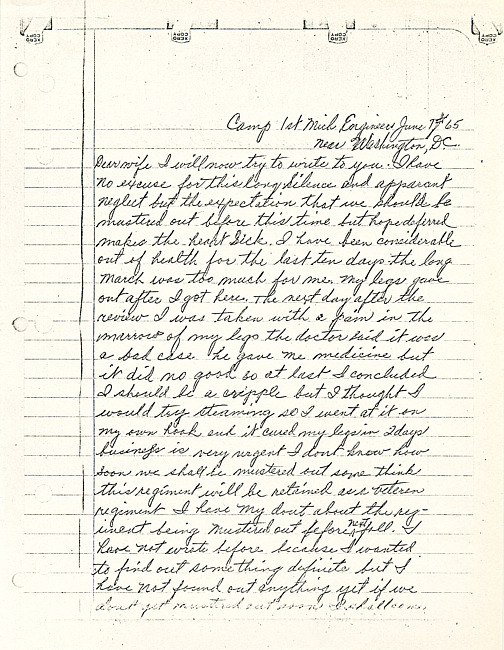 Camp 1st Mich Engineers June 7th 65
near Washington, D.C.
Dear wife I will now try to write to you. I have
no excuse for this long silence and apparent
neglect but the expectation that we should be
mustered out before this time but hope deferred
makes the heart sick. I have been considerable
out of health for the last ten days. the long
march was too much for me. my legs gave
out after I got here. The next day after the
review I was taken with a pain in the
marrow of my legs the doctor said it was
a bad case. he gave me medicine but
it did no good so at last I concluded
I should be a cripple but I thought I
would try steaming so I went at it on
my own hook and it cured my legs in 2 days
business is very urgent I dont know how
soon we shall be mustered out some think
this regiment will be retained as a veteran
regiment I have my dout about the reg-
iment being mustered out before next fall. I
have not wrote before because I wanted
to find out something definite but I
have not found out anything yet if we
dont get mustered out soon I shall